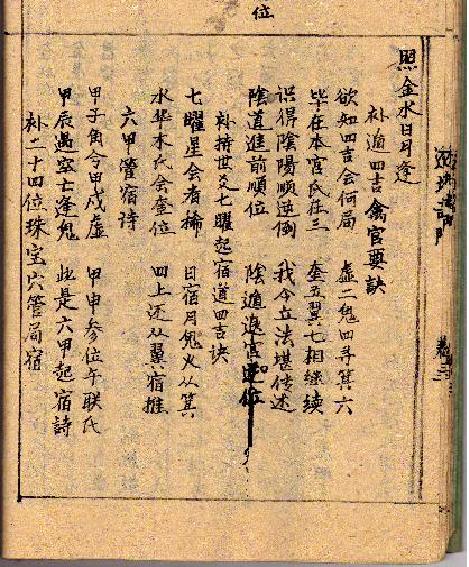 位
照金水日月逢
补遁四吉禽官要訣
欲知四吉会何局 虚二鬼四寻箕六
毕在本宫氐在三 奎五翼七相继续
识得陰陽顺逆倒 我今立法堪传述
陰道進前順位 陰遁退宫逆位
补持世爻七曜起宿遁四吉诀
七曜星会者稀 日宿月鬼火从箕
水毕木氐金奎位 四上还从翼宿推
六甲管宿诗
甲子角今甲戌虚 甲申参位午联氐
甲辰遇室亡逢鬼 此是六甲起宿詩
补二十四位珠宝穴管局宿